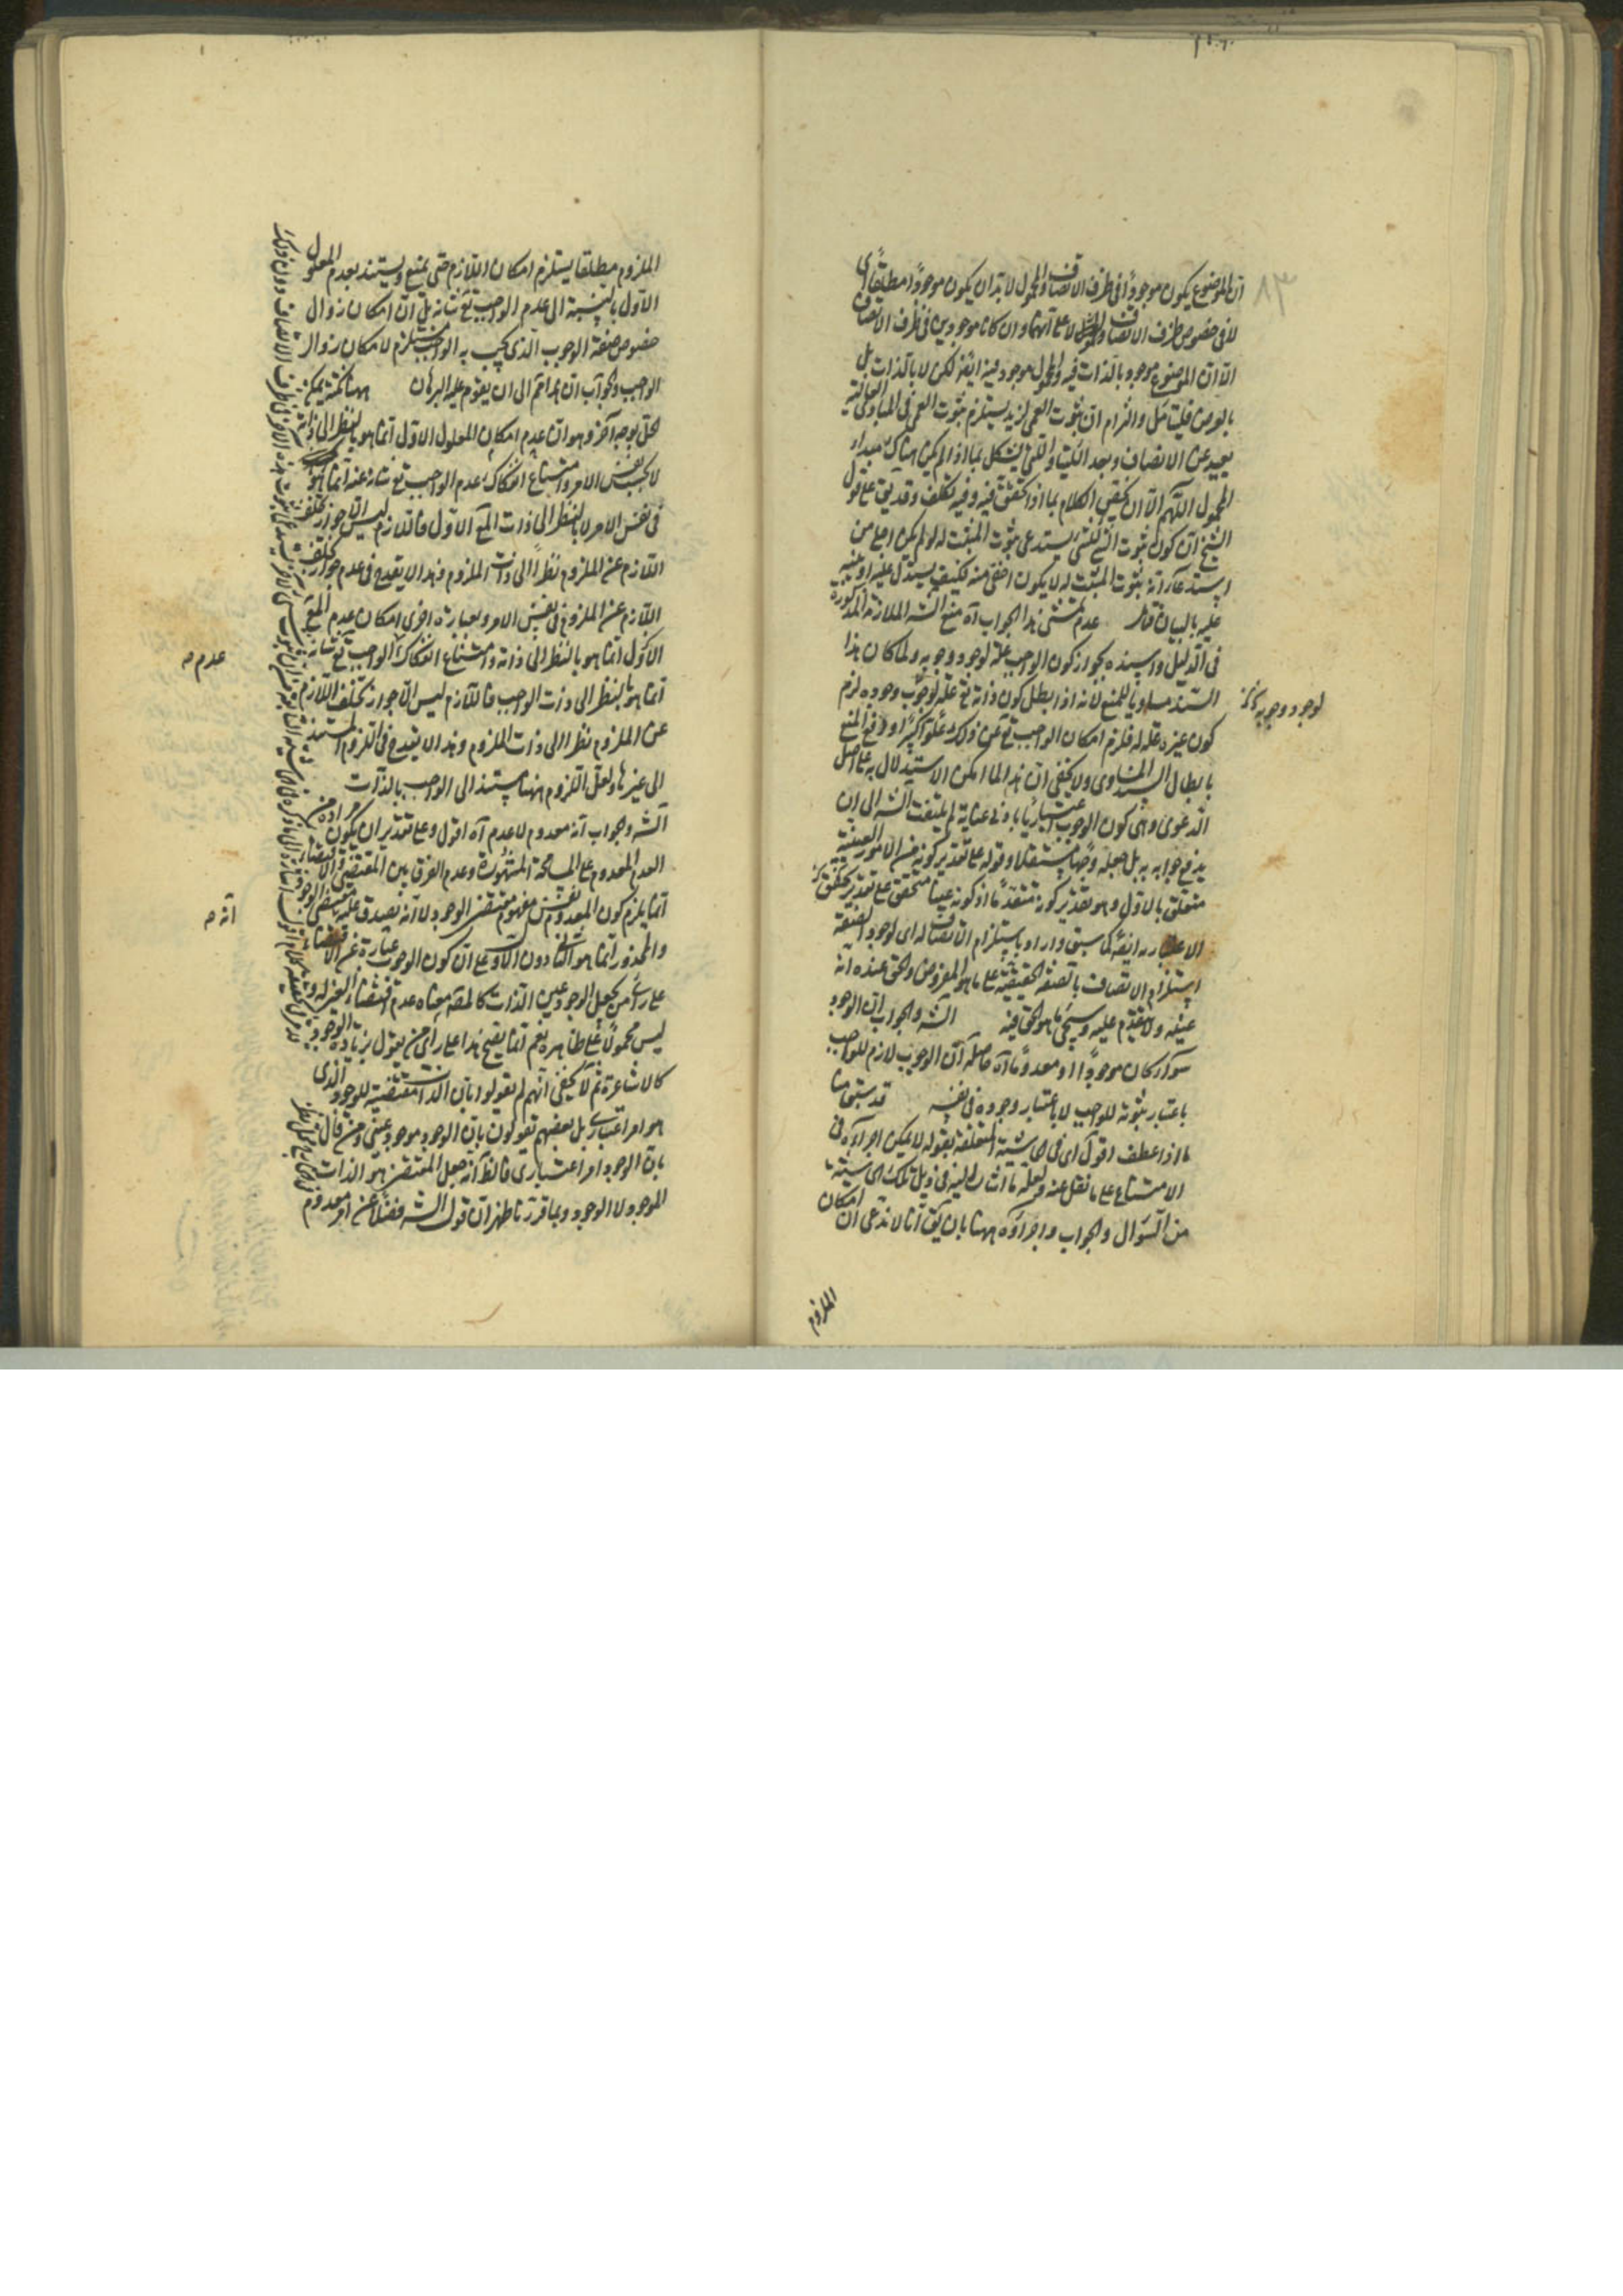 ان الموضوع يكون موجودا فى ظرف الاتصاف والمحمول لابد ان يكون موجودا مطلقا اى
لا فى خصوص ظرف الاتصاف لا على انهما وان كانا موجودين فى ظرف الاتصاف
الا ان الموضوع موجود بالذات فيه والمحمول موجود فيه ايضا لكن لا بالذات بل
بالعرض فليتأمل والتزام ان ثبوت العمى لزيد يستلزم ثبوت العمى فى المبادى العالية
بعيد عن الانصاف وبعد اللتيا والتى يشكل بما اذا لم يكن هناك مبدأ
المحمول اللهم الا ان يختص الكلام بما اذا تحقق فيه وفيه تكلف وقد يق على قول
الشيخ ان كون ثبوت الشئ للشئ يستدعى ثبوت المثبت له لو لم يكن اجلى من
استدعائه ثبوت المثبت لا يكون اخفى منه فكيف يستدل عليه او ينبه
عليه بالبيان عدم تمشى هذا الجواب اه منع الشه الملازمة المذكورة
فى الدليل واسنده بجواز كون الواجب علة لوجود وجوبه ولما كان هذا
السند مساويا للمنع لانه اذا بطل كون ذاته تع علة لوجوب وجوده لزم
كون غيره علة له فلزم امكان الواجب تع عن ذلك علوا كبيرا ودفع المنع
بابطال السند المساوى ولا يخفى ان هذا لما امكن الاستدلال به على اصل
الدعوى وهى كون الوجوب اعتباريا بادنى عناية لم يلتفت الشه الى ان
يدفع جوابه به بل جعله وجها مستقلا وقوله على تقدير كونه من الامور العينية
متعلق بالاول وهو تقدير كونه متقدما اذ كونه عينا متحقق على تقدير تحقق
الاعتبار به ايضا كما سبق واراد باستلزام اتصاف له اى لوجود الصفة
استلزام الاتصاف بالصفة الحقيقية على ما هو المفروض والحق عنده انه
عينه ولا تقدم عليه وسيجئ ما هو الحق فيه الشه والجواب ان الوجود
سواء كان موجودا او معدوما اه حاصله ان الوجوب لازم للواجب
باعتبار ثبوته للواجب لا باعتبار وجوده فى نفسه قد سبق منا
ما اذا عطف اقول اى فى الحاشية المتعلقة بقوله لا يمكن اجراؤه فى
الامتناع على ما نقل عنه ولعله ما اشار اليه فى ذيل تلك الحاشية
من السؤال والجواب واجراؤه ههنا بان يق انا لا ندعى ان امكان
الملزوم
لوجود وجوبه
٨٣
الملزوم مطلقا يستلزم امكان اللازم حتى يمنع ويستند بعدم المعلول
الاول بالنسبة الى عدم الواجب تع شانه بل ان امكان زوال
خصوص صفة الوجوب الذى يجب به الواجب مستلزم لامكان زوال
الواجب والجواب ان هذا تم الى ان يقوم عليه البرهان ههنا نكتة يمكن
الحل بوجه آخر وهو ان عدم امكان المعلول الاول انما هو بالنظر الى ذاته
لا بحسب نفس الامر وامتناع انفكاك عدم الواجب تع شانه عنه انما هو
فى نفس الامر لا بالنظر الى ذات المع الاول فاللازم ليس الا جواز تخلف
اللازم عن الملزوم نظرا الى ذات الملزوم وهذا لا يقدح فى عدم جواز تخلف
اللازم عن الملزوم فى نفس الامر وبعبارة اخرى امكان عدم المع
الاول انما هو بالنظر الى ذاته وامتناع انفكاك الواجب تع شانه
انما هو بالنظر الى ذات الواجب فاللازم ليس الا جواز تخلف اللازم
عن الملزوم نظرا الى ذات الملزوم وهذا لا يقدح فى اللزوم المستند
الى غيرها ولعل اللزوم ههنا مستند الى الواجب بالذات
الشه والجواب انه معدوم لا عدم اه اقول وعلى تقدير ان يكون مراده من
العدم المعدوم على المسامحة المشهورة وعدم الفرق بين المقتضى والاقتضاء
انما يلزم كون المعدوم نفس مفهوم مقتضى الوجود لا انه يصدق عليه مقتضى الوجود
والمحذور انما هو الثانى دون الاول على ان كون الوجوب عبارة عن الاقتضاء
على راى من يجعل الوجود عين الذات كالمق معناه عدم اقتضاء الغير له
ليس محمولا على ظاهره نعم انما يصح هذا على راى من يقول بزيادة الوجود
كالاشاعرة ثم لا يخفى انهم لم يقولوا بان الذات مقتضية للوجود الذى
هو امر اعتبارى بل بعضهم يقولون بان الوجود موجود عينى ومن قال
بان الوجود امر اعتبارى فالظ انه جعل المقتضى هو الذات
الموجود لا الوجود وبما قررنا ظهر ان قول الشه فضلا عن امر معدوم
عدم ص
انه ص